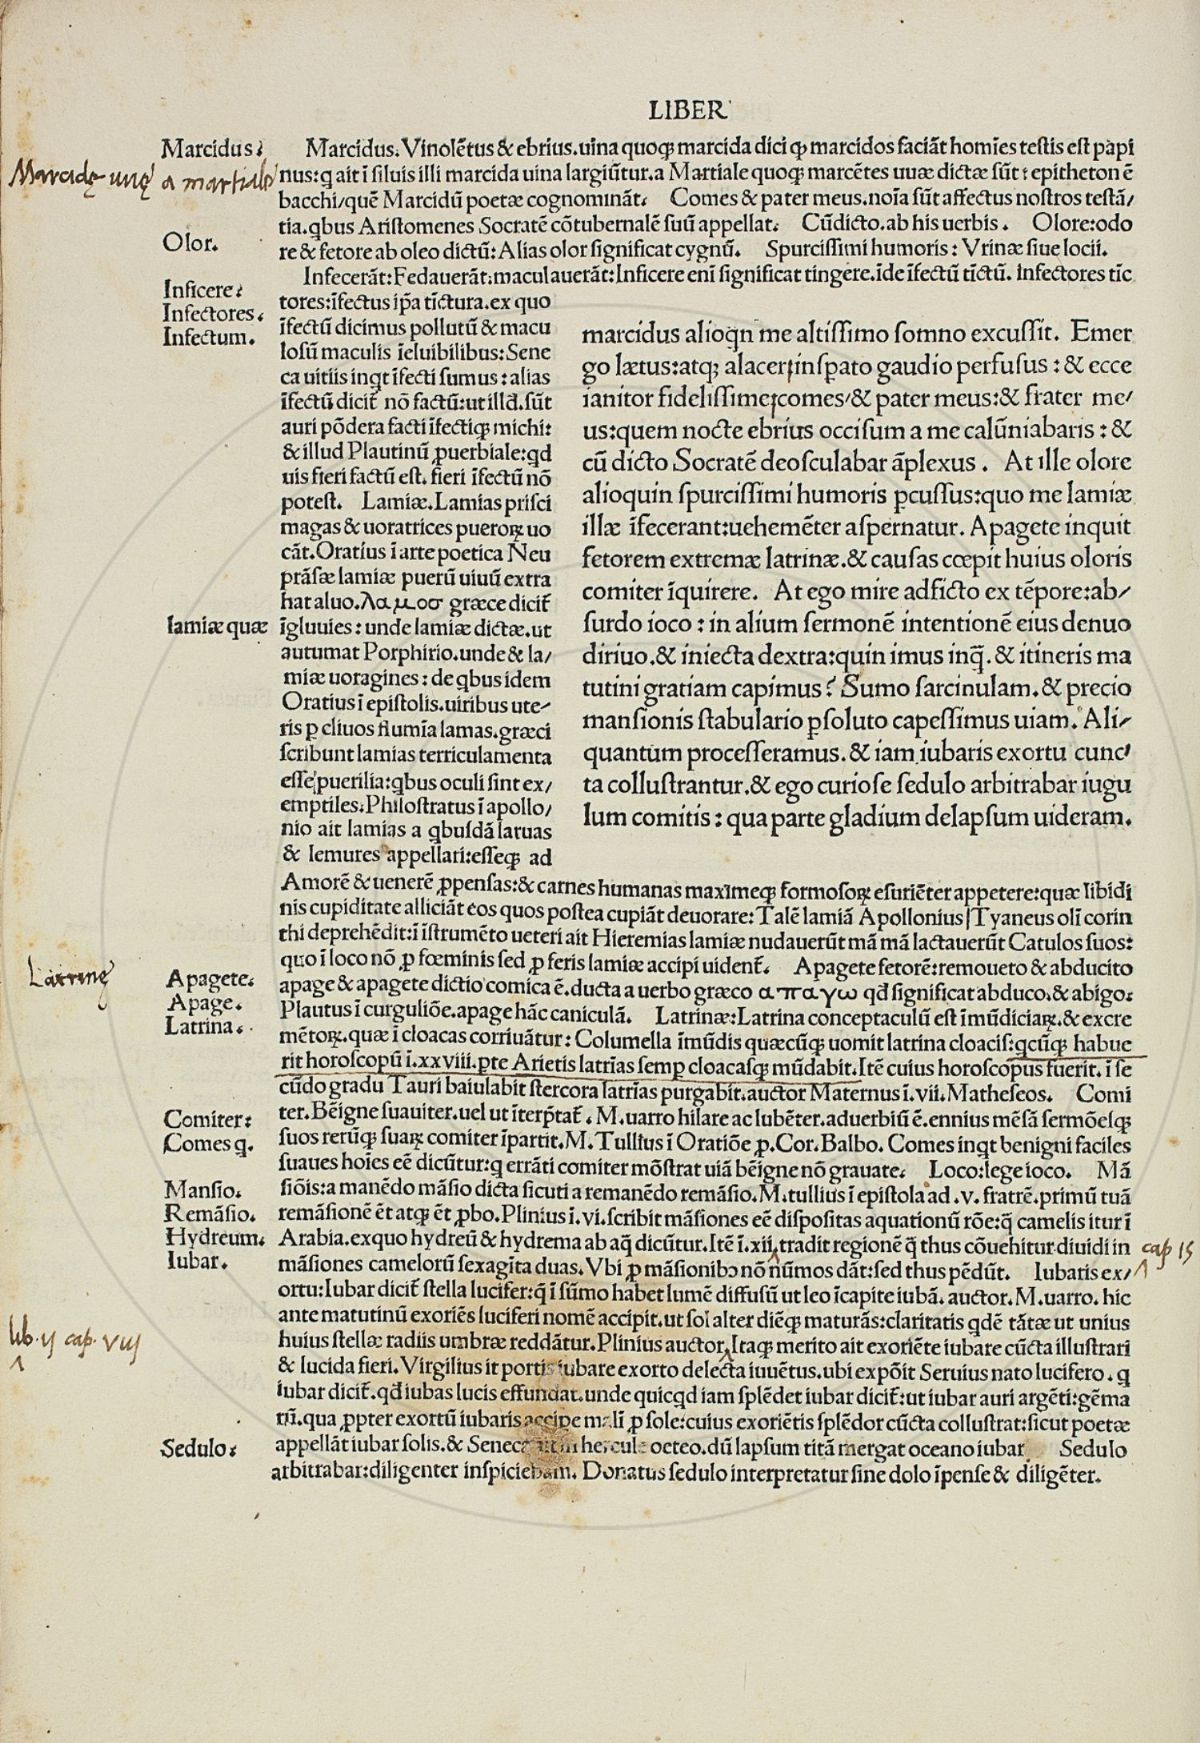 LIBER
Marcidus:
Marcidę uuę a martiale
Olor.
Inficere:
Infectores.
Infectum.
lamiæ quæ
Latrinę
Apagete.
Apage.
Latrina.
Comiter:
Comes q.
Mansio.
Remãsio.
Hydreum.
Iubar.
Sedulo:
cap 15
lib. ij cap. viij
Marcidus. Vinolẽtus & ebrius. uina quoqꝫ marcida dici qꝫ marcidos faciãt homĩes testis est papi
nius: q̃ ait ĩ siluis illi marcida uina largiũtur. a Martiale quoqꝫ marcẽtes uuæ dictæ sũt: epitheton ẽ
bacchi/quẽ Marcidũ poetæ cognominãt. Comes & pater meus. noĩa sũt affectus nostros testã/
tia. qbus Aristomenes Socratẽ cõtubernalẽ suũ appellat. Cũ dicto. ab his uerbis. Olore: odo
re & fetore ab oleo dictũ: Alias olor significat cygnũ. Spurcissimi humoris: Vrinæ siue locii.
Infecerãt: Fedauerãt: maculauerãt: Inficere enĩ significat tingere. ĩde ĩfectũ tĩctũ. Infectores tĩc
tores: ĩfectus ip̃a tĩctura. ex quo
ĩfectũ dicimus pollutũ & macu
losũ maculis ĩeluibilibus: Sene
ca uitiis inq̃t ĩfecti sumus: alias
ĩfectũ dicit̃ nõ factũ: ut illd. sũt
auri põdera facti ĩfectiqꝫ michi:
& illud Plautinũ ꝓuerbiale: qd
uis fieri factũ est. fieri ĩfectũ nõ
potest. Lamiæ. Lamias prisci
magas & uoratrices pueroꝝ uo
cãt. Oratius ĩ arte poetica Neu
prãsæ lamiæ puerũ uiuũ extra
hat aluo. λαμοσ græce dicit̃
ĩgluuies: unde lamiæ dictæ. ut
autumat Porphirio. unde & la/
miæ uoragines: de qbus idem
Oratius ĩ epistolis. uiribus ute/
ris ꝑ cliuos flumĩa lamas. græci
scribunt lamias terriculamenta
esse puerilia: qbus oculi sint ex/
emptiles. Philostratus ĩ apollo/
nio ait lamias a qbusdã laruas
& lemures appellari: esseqꝫ ad
marcidus alioqn me altissimo somno excussit. Emer
go lætus: atqꝫ alacer insꝑato gaudio perfusus: & ecce
ianitor fidelissime comes/& pater meus: & frater me/
us: quem nocte ebrius occisum a me calũniabaris: &
cũ dicto Socratẽ deosculabar ãplexus. At ille olore
alioquin spurcissimi humoris ꝑcussus: quo me lamiæ
illæ ĩfecerant: uehemẽter aspernatur. Apagete inquit
fetorem extremæ latrinæ. & causas cœpit huius oloris
comiter ĩquirere. At ego mire adficto ex tẽpore: ab/
surdo ioco: in alium sermonẽ intentionẽ eius denuo
diriuo. & iniecta dextra: quin imus inq̃. & itineris ma
tutini gratiam capimus? Sumo sarcinulam. & precio
mansionis stabulario ꝑsoluto capessimus uiam. Ali/
quantum processeramus. & iam iubaris exortu cunc/
ta collustrantur. & ego curiose sedulo arbitrabar iugu
lum comitis: qua parte gladium delapsum uideram.
Amorẽ & uenerẽ ꝓpensas: & carnes humanas maximeqꝫ formosoꝝ esuriẽter appetere: quæ libidi
nis cupiditate alliciãt eos quos postea cupiãt deuorare: Talẽ lamiã Apollonius Tyaneus olĩ corin
thi deprehẽdit: ĩ ĩstrumẽto ueteri ait Hieremias lamiæ nudauerũt mã mã lactauerũt Catulos suos:
quo ĩ loco nõ ꝓ fœminis sed ꝓ feris lamiæ accipi uident̃. Apagete fetorẽ: remoueto & abducito
apage & apagete dictio comica ẽ. ducta a uerbo græco απαγω qđ significat abduco. & abigo:
Plautus ĩ curguliõe. apage hãc caniculã. Latrinæ: Latrina conceptaculũ est ĩmũdiciaꝝ. & excre
mẽtoꝝ. quæ ĩ cloacas corriuãtur: Columella ĩmũdis quæcũqꝫ uomit latrina cloacis: qcũqꝫ habue
rit horoscopũ ĩ. xxviii. ꝑte Arietis latrĩas semꝑ cloacasqꝫ mũdabit. Itẽ cuius horoscopus fuerit. ĩ se
cũdo gradu Tauri baiulabit stercora latrĩas purgabit. auctor Maternus ĩ. vii. Matheseos. Comi
ter. Bẽigne suauiter. uel ut ĩterp̃tat̃. M. uarro hilare ac lubẽter. aduerbiũ ẽ. ennius mẽsã sermõesqꝫ
suos rerũqꝫ suaꝝ comiter ĩpartit. M. Tullius ĩ Oratiõe ꝓ. Cor. Balbo. Comes inqt benigni faciles
suaues hoĩes eẽ dicũtur: q errãti comiter mõstrat uiã bẽigne nõ grauate. Loco: lege ioco. Mã
siõis: a manẽdo mãsio dicta sicuti a remanẽdo remãsio. M. tullius ĩ epistola ad. v. fratrẽ. primũ tuã
remãsionẽ ẽt atqꝫ ẽt ꝓbo. Plinius ĩ. vi. scribit mãsiones eẽ dispositas aquationũ rõe: q̃ camelis itur ĩ
Arabia. ex quo hydreũ & hydrema ab aq̃ dicũtur. Itẽ ĩ. xii. tradit regionẽ q̃ thus cõuehitur diuidi in
mãsiones camelorũ sexagĩta duas. Vbi ꝓ mãsionibꝰ nõ nũmos dãt: sed thus pẽdũt. Iubaris ex/
ortu: Iubar dicit̃ stella lucifer: q̃ ĩ sũmo habet lumẽ diffusũ ut leo ĩ capite iubã. auctor. M. uarro. hic
ante matutinũ exoriẽs luciferi nomẽ accipit. ut sol alter diẽqꝫ maturãs: claritatis qdẽ tãtæ ut unius
huius stellæ radiis umbræ reddãtur. Plinius auctor. Itaqꝫ merito ait exoriẽte iubare cũcta illustrari
& lucida fieri. Virgilius it portis iubare exorto delecta iuuẽtus. ubi expõit Seruius nato lucifero. q
iubar dicit̃. qđ iubas lucis effundat. unde quicqd iam splẽdet iubar dicit̃: ut iubar auri argẽti: gẽma
rũ. qua ꝓpter exortũ iubaris accipe malĩ ꝓ sole: cuius exoriẽtis splẽdor cũcta collustrat: sicut poetæ
appellãt iubar solis. & Seneca hercule octeo. dũ lapsum titã mergat oceano iubar Sedulo
arbitrabar: diligenter inspiciebam. Donatus sedulo interpretatur sine dolo ĩpense & diligẽter.